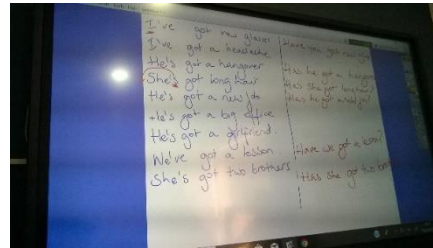 I've got new glasses
I've got a headache
He's got a hangover
She's got long hair
He's got a new job
He's got a big office
He's got a girlfriend.
We've got a lesson
She's got two brothers
Have you got new
Has he got a hangover
Has she got long hair?
Has he got a
Have we got a lesson?
Has she got two